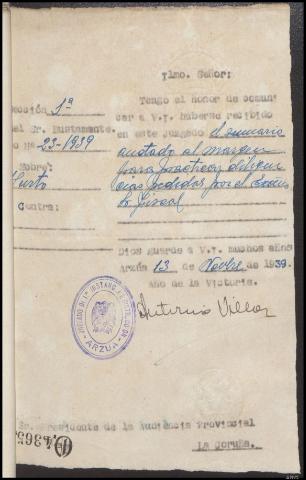 Ylmo. Señor:
ección 1ª
el Sr. Bustamante.
o Nº 23-1939
Sobre:
Hurto
Contra:
Tengo el honor de comuni
car a V.Y. haberse recibido
en este Juzgado el sumario
anotado al margen
para practicar diligen
cias pedidas por el Excmo
Sr. Fiscal
Dios guarde a V.Y. muchos años
Arzúa 13 de Novbre de 1939.
Año de la Victoria.
Antonio Villar
JUZGADO DE 1ª INSTANCIA E INSTRUCCIÓN
ARZUA
Sr. Presidente de la Audiencia Provincial
La Coruña.
4.365